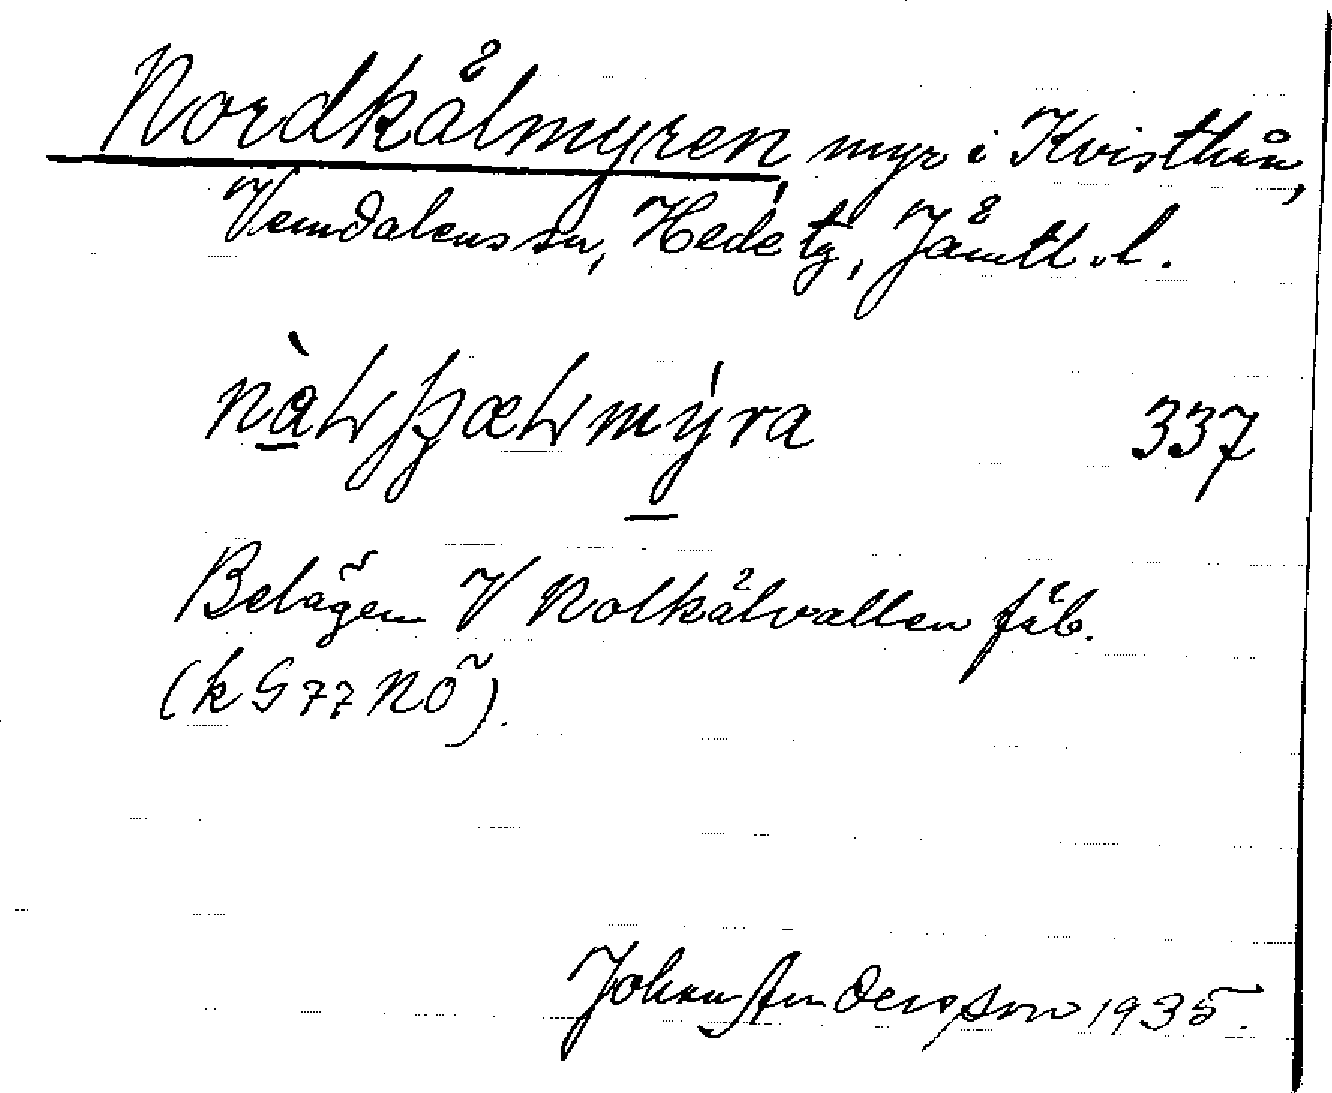 Nordkålmyren, myr i Kvisthån,
Vemdalens sn, Hede tg, Jämtl. l.
337
Belägen V Nolkålvallen fäb.
(k G 77 NÖ).
Johan Andersson 1935.